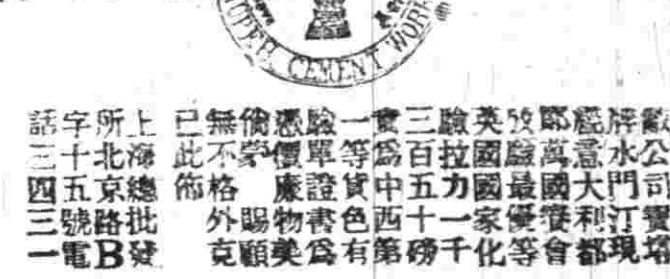 UPER CEMENT WORK
敝公司寶塔
牌水門汀現
經意大利都
郎萬國賽會
攷驗最優等
英國國家化
驗拉力一千
三百五十磅
實為中西第
一等貨色有
驗單證書為
憑價廉物美
倘蒙 賜顧
無不格外克
已此佈
上海總批發
所北京路B
字十五號電
話三四三一